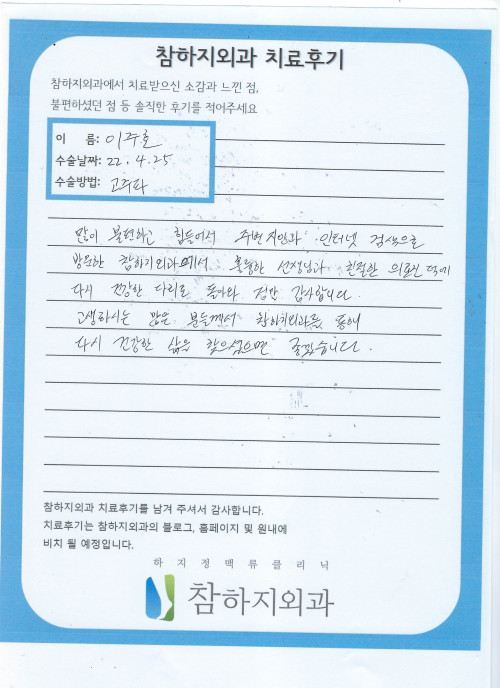 참하지외과 치료후기
참하지외과에서 치료받으신 소감과 느낀 점,
불편하셨던 점 등 솔직한 후기를 적어주세요
이 름: 이주호
수술날짜: 22. 4. 25
수술방법: 고주파
많이 불편하고 힘들어서 주변지인과 인터넷 검색으로
방문한 참하지외과에서 훌륭한 선생님과 친절한 의료진 덕에
다시 건강한 다리로 돌아와 정말 감사합니다.
고생하시는 많은 분들께서 참하지외과를 통해
다시 건강한 삶을 찾으셨으면 좋겠습니다.
참하지외과 치료후기를 남겨 주셔서 감사합니다.
치료후기는 참하지외과의 블로그, 홈페이지 및 원내에
비치 될 예정입니다.
하지정맥류클리닉
참하지외과